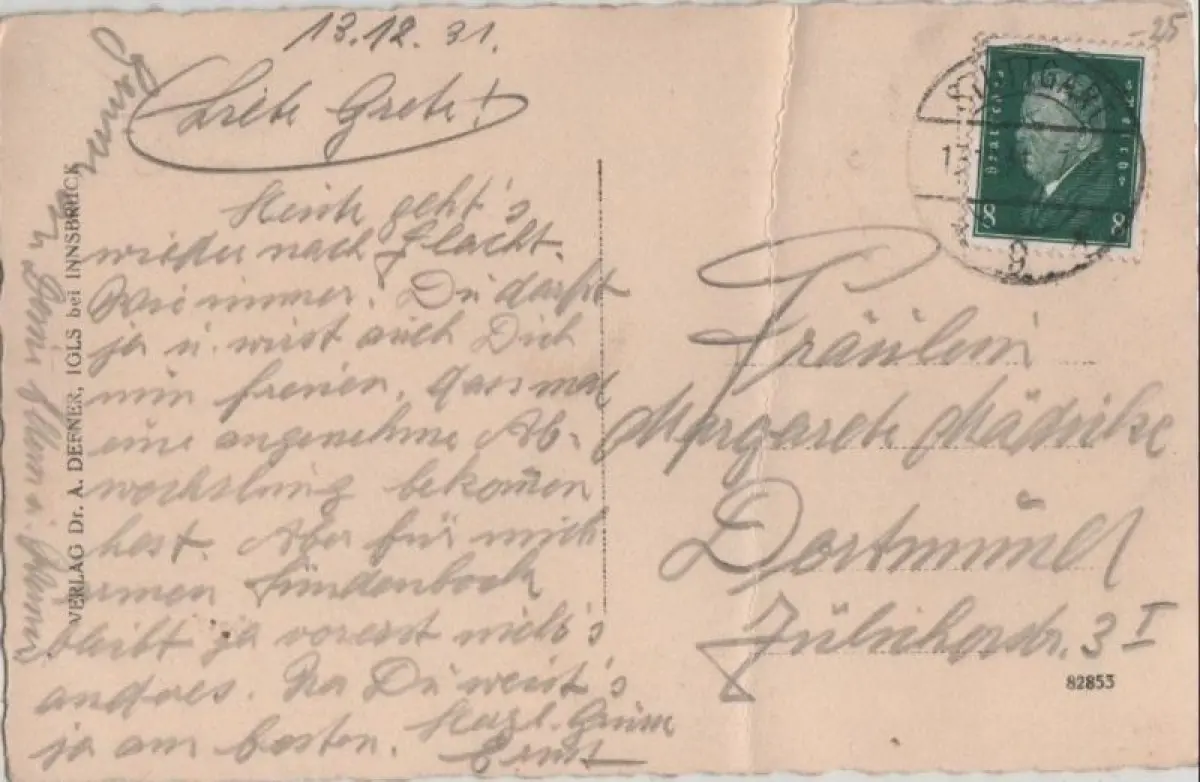 13.12.31.
-25
Liebe Grete!
Heute geht's
wieder nach Flacht.
Wie immer. Du darfst
ja u. wirst auch Dich
nun freuen, dass mal
eine angenehme Ab-
wechslung bekommen
hast. Aber für mich
armen Sündenbock
bleibt ja vorerst nicht's
andres. Na Du weist's
ja am besten. Herzl. Grüsse
Ernst
VERLAG Dr. A. DEFNER, IGLS bei INNSBRUCK
STUTTGART
9
Deutsches Reich
8 8
Fräulein
Margarete Mädicke
Dortmund
Jülicherstr. 3 I
82853